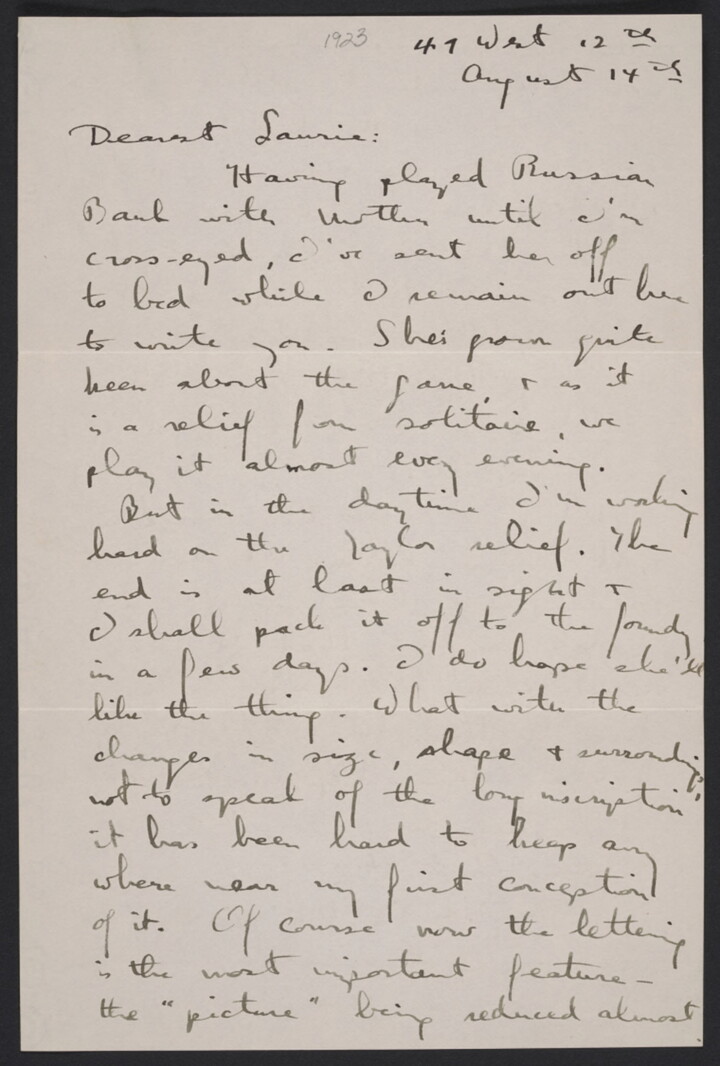 1923
47 West 12th
August 14th
Dearest Laurie:
Having played Russian
Bank with Mother until I'm
cross-eyed, I've sent her off
to bed while I remain out here
to write you. She's grown quite
keen about the game, & as it
is a relief from solitaire, we
play it almost every evening.
But in the daytime I'm working
hard on the Taylor relief. The
end is at last in sight &
I shall pack it off to the foundry
in a few days. I do hope she'll
like the thing. What with the
changes in size, shape & surroundings,
not to speak of the long inscription,
it has been hard to keep any
where near my first conception
of it. Of course now the lettering
is the most important feature —
the "picture" being reduced almost